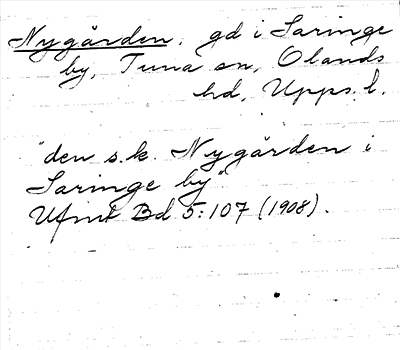 Nygården, gd i Saringe
by, Tuna sn, Olands
hd, Upps. l.
"den s.k. Nygården i
Saringe by".
Ufmt Bd 5:107 (1908).